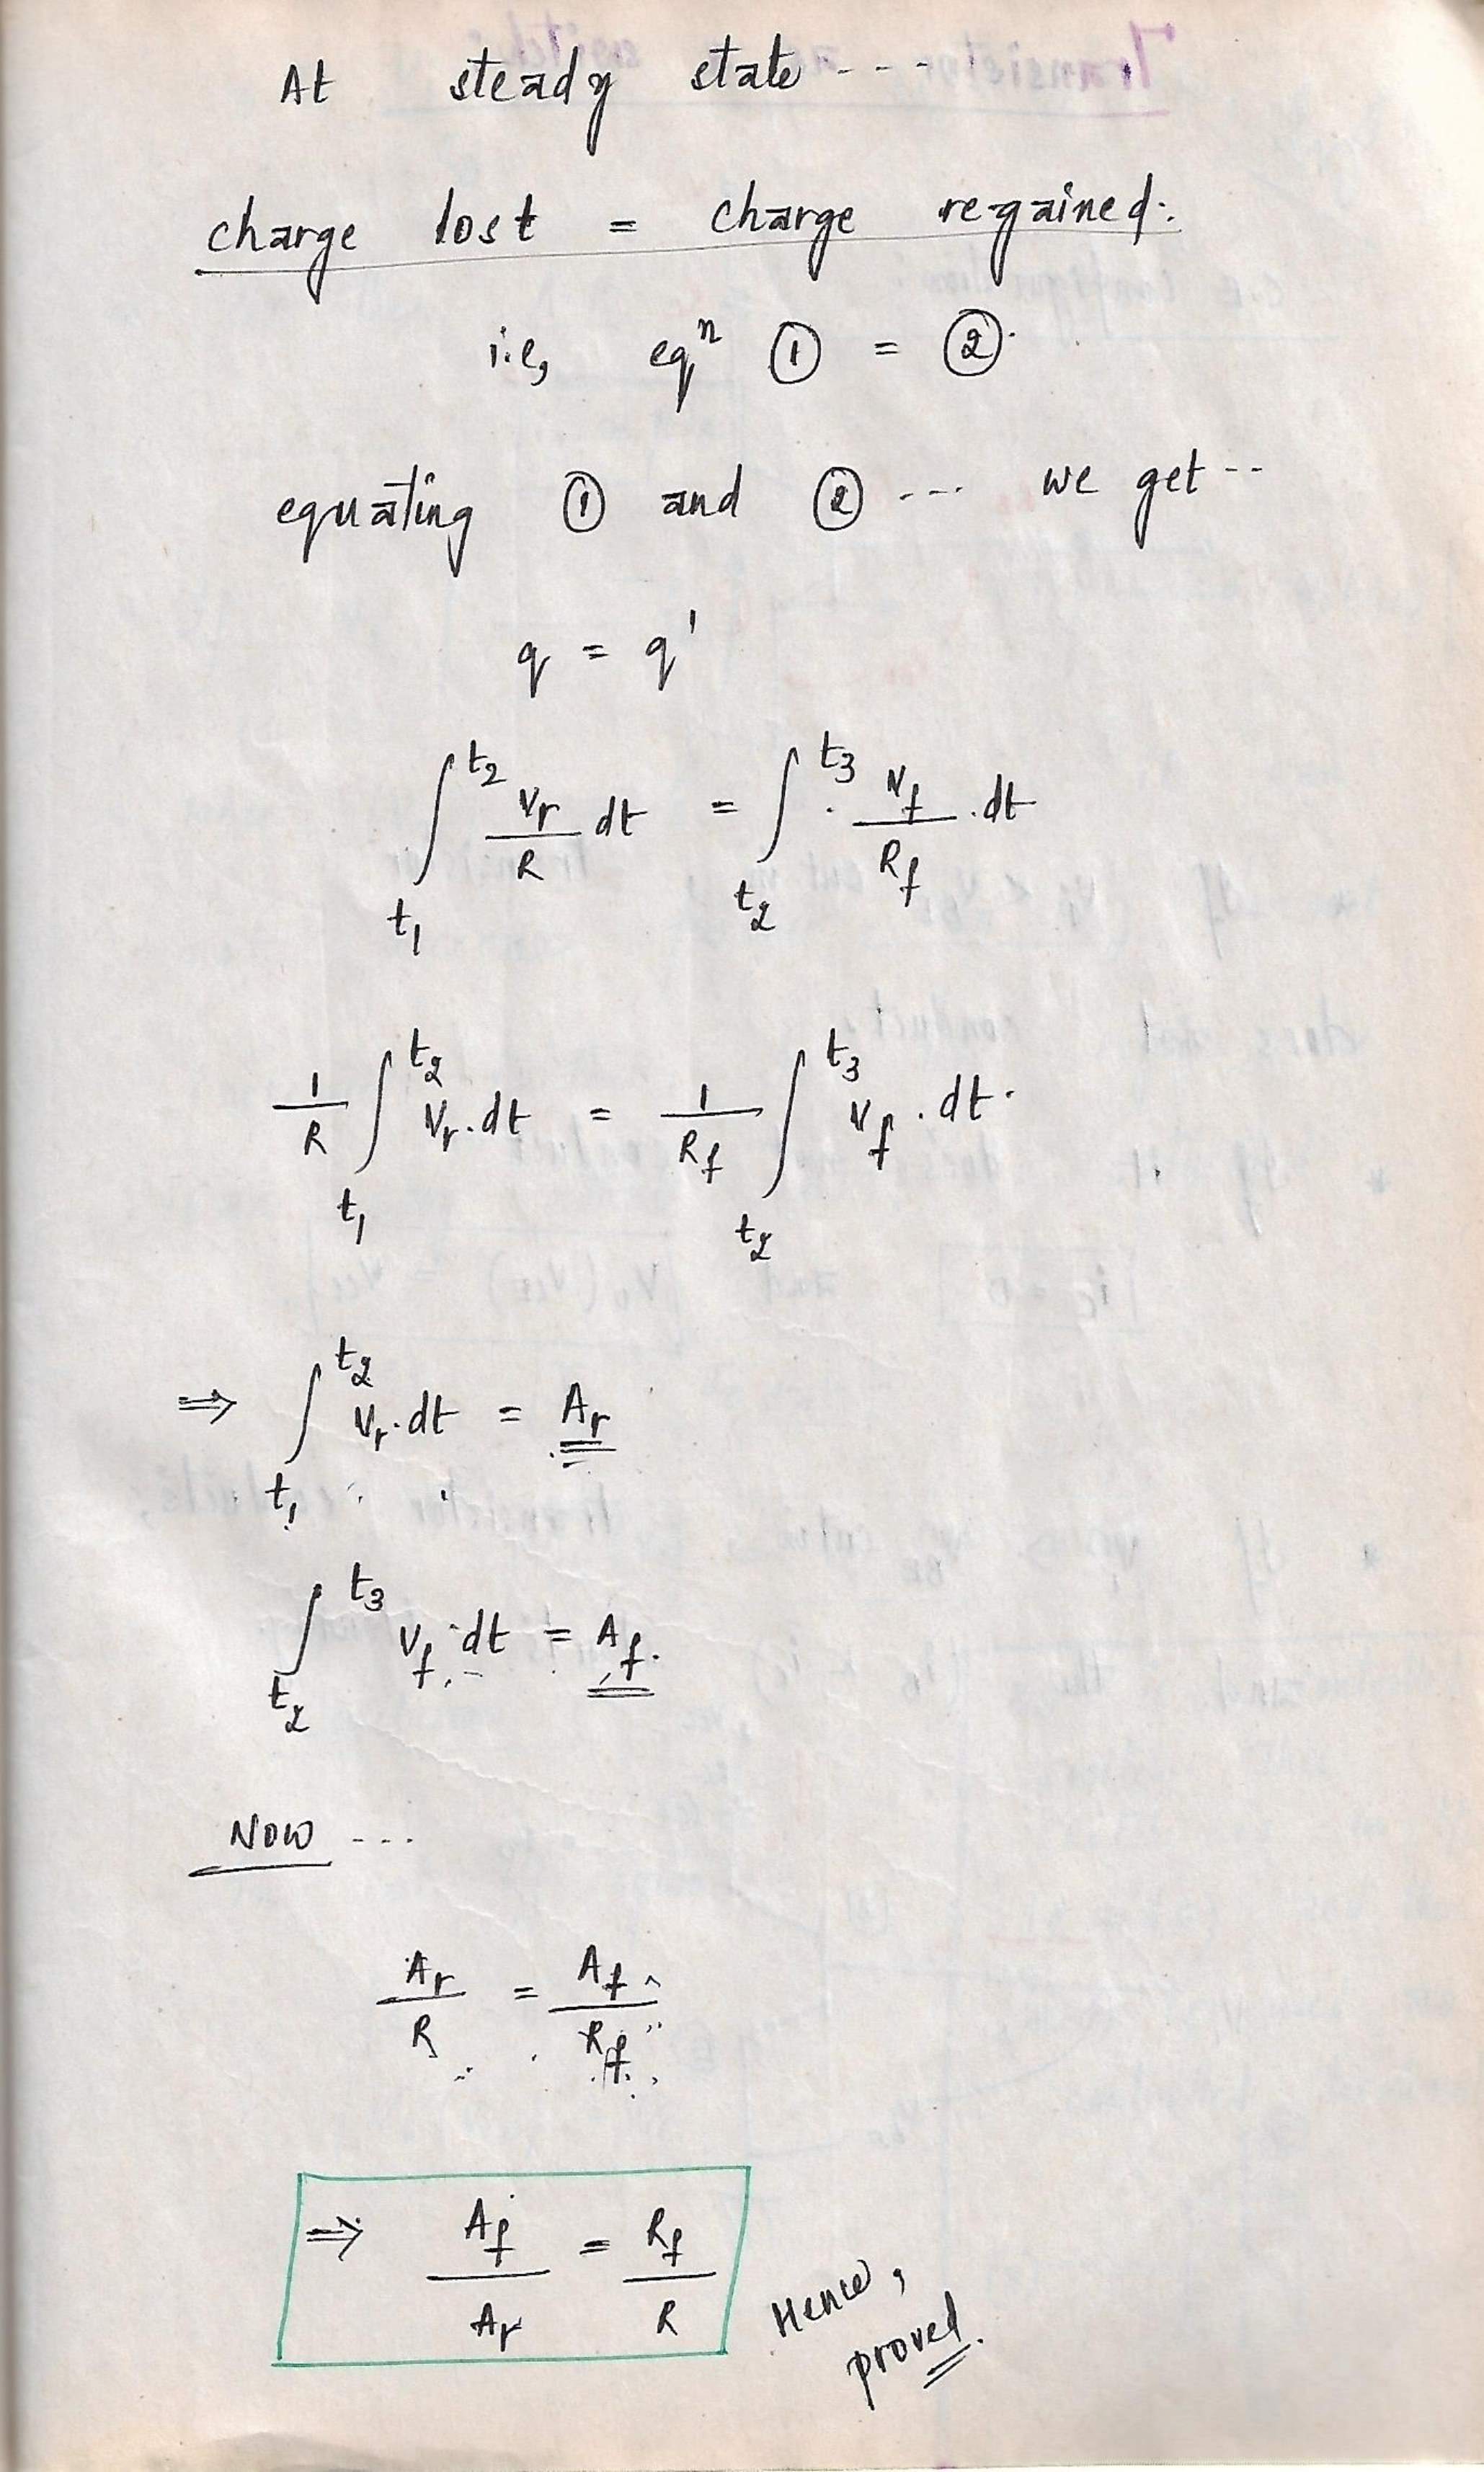 At steady state ----
charge lost = charge regained.
i.e, eqⁿ ① = ②.
equating ① and ② --- we get --
q = q'
∫_{t₁}^{t₂} Vr/R dt = ∫_{t₂}^{t₃} Vf/Rf . dt
1/R ∫_{t₁}^{t₂} Vr . dt = 1/Rf ∫_{t₂}^{t₃} Vf . dt.
⇒ ∫_{t₁}^{t₂} Vr . dt = Ar
∫_{t₂}^{t₃} Vf . dt = Af.
NOW ---
Ar/R = Af/Rf
⇒ Af/Ar = Rf/R
Hence,
proved.